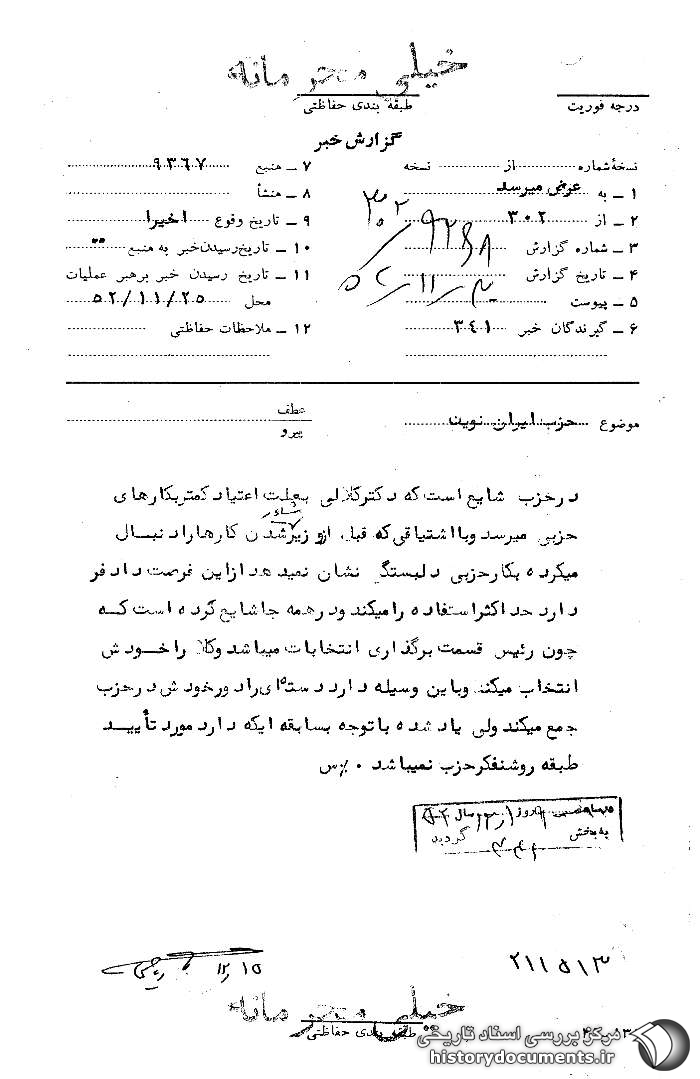 خیلی محرمانه
طبقه بندی حفاظتی
درجه فوریت
گزارش خبر
نسخهٔ شماره ............ از ............ نسخه
۱ ــ به عرض میرسد
۲ ــ از ۳۰۲
۳ ــ شماره گزارش
۴ ــ تاریخ گزارش
۵ ــ پیوست
۶ ــ گیرندگان خبر ۳۴۱
۷ ــ منبع ۹۳۶۷
۸ ــ منشأ
۹ ــ تاریخ وقوع اخیرا
۱۰ ــ تاریخ رسیدن خبر به منبع "
۱۱ ــ تاریخ رسیدن خبر برهبر عملیات
محل ۵۲/۱۱/۲۵
۱۲ ــ ملاحظات حفاظتی
موضوع حزب ایران نوین
عطف
پیرو
درحزب شایع است که دکترکلالی بعلت اعتیاد کمتربکارهای
حزبی میرسد وبااشتیاقی که قبل از
شدن کارهاراد نبال
میکرده بکارحزبی دلبستگی نشان نمیدهد ازاین فرصت دادفر
دارد حداکثراستفاده رامیکند ودرهمه جاشایع کرده است که
چون رئیس قسمت برگذاری انتخابات میباشد وکلا راخودش
انتخاب میکند وباین وسیله دارد دسته‌ای رادورخودش درحزب
جمع میکند ولی یاد شده باتوجه بسابقه ایکه دارد مورد تأیید
طبقه روشنفکرحزب نمیباشد ۰
روز
سال
به بخش
گردید
۳۴۱
۲۱۱۵۱۳
خیلی محرمانه
طبقه بندی حفاظتی
مرکز بررسی اسناد تاریخی
historydocuments.ir